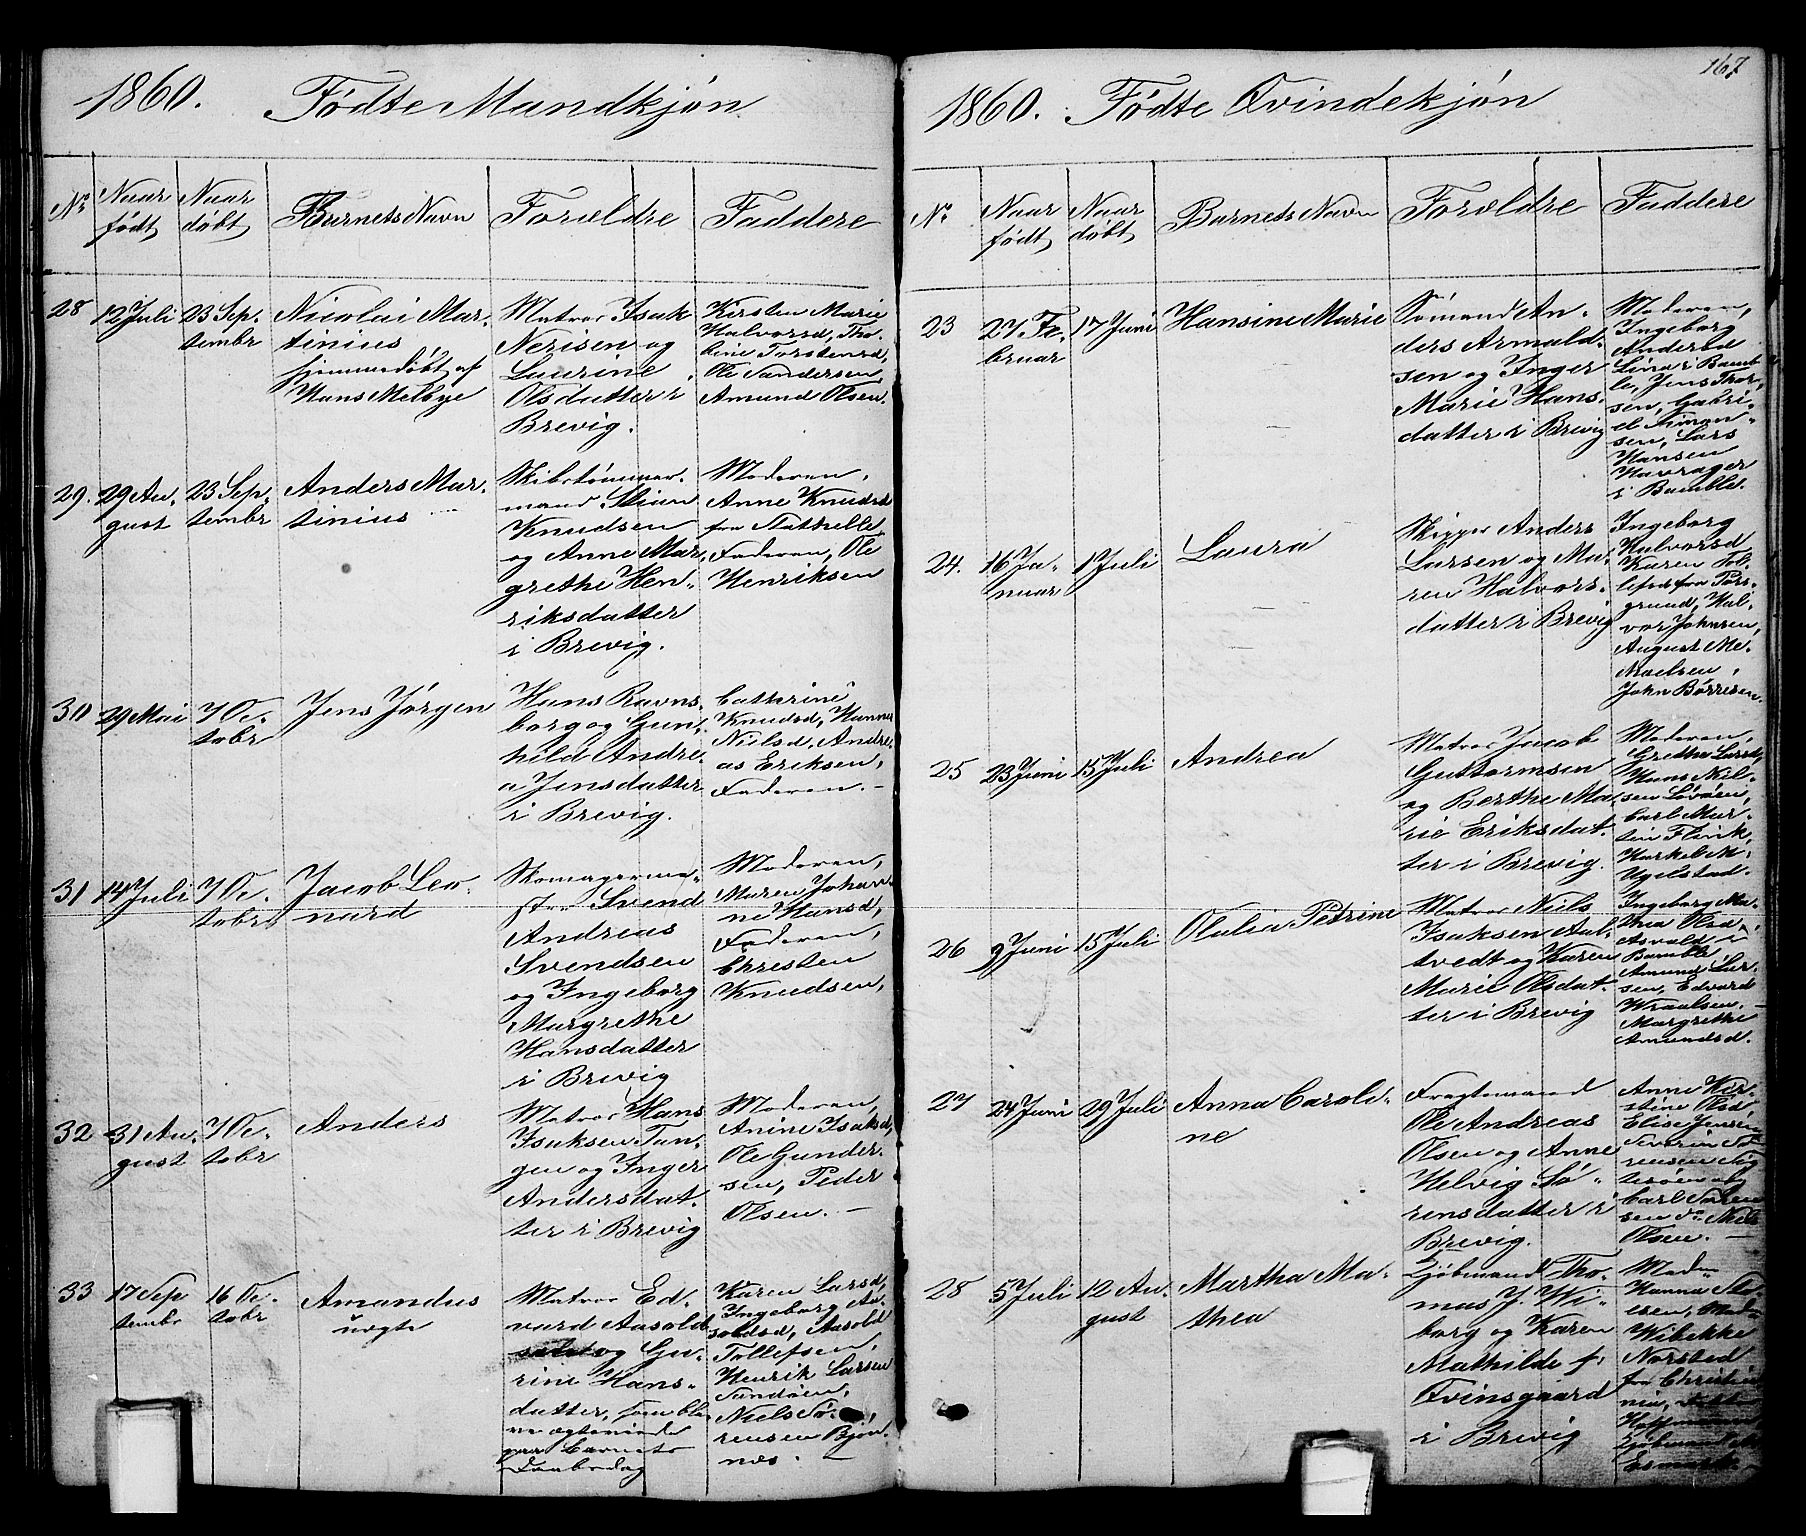 1860. Fødte Mandkjøn
No
Naar født
Naar døbt
Barnets Navn
Forældre
Faddere
28
12 Juli
23 Sep-
tembr
Nicolai Mar-
tinius
hjemmedøbt af
Hans Melbye
Matros Isak
Nerisen og
Laurine
Olsdatter i
Brevig.
Kirsten Marie
Halvorsd, Tho-
bine Torstensd,
Ole Sandersen,
Amund Olsen.
29.
29 Au-
gust
23 Sep-
tembr
Anders Mar-
tinius
Skibstømmer-
mand Stian
Knudsen
og Anne Mar-
grethe Hen-
riksdatter
i Brevig.
Moderen,
Anne Knudsd
fra Stathelle
Faderen, Ole
Henriksen
30
29 Mai
7 Oc-
tobr
Jens Jørgen
Hans Ravns-
borg og Gun-
hild Andre-
a Jensdatter
i Brevig.
Cathrine
Knudsd, Hanna
Nielsd, Andre-
as Eriksen,
Faderen. -
31
14 Juli
7 Oc-
tobr
Jacob Leo-
nard
Skomagerme-
ster Svend
Andreas
Svendsen
og Ingeborg
Margrethe
Hansdatter
i Brevig
Moderen,
Maren Johan-
ne Hansd,
Faderen,
Christen
Knudsen,
32
31 Au-
gust
7 Oc-
tobr
Anders
Matros Hans
Isaksen Tan-
gen og Inger
Andersdat-
ter i Brevig
Moderen,
Anine Isaksd,
Ole Gunder-
sen, Peder
Olsen. -
33
17 Sep
tembr
16 Oc-
tobr
Amandus
uægte
Matros Ed-
vard Aasold
og Gu-
rine Hans-
datter, som ble-
ve ægteviede
paa Barnets
Daabsdag
Karen Larsd,
Ingeborg Aa-
soldsd, Aasold
Tollefsen,
Henrik Larsen
Sandøen,
Niels Sø-
rensen Bjøn-
nes. -
167
1860. Fødte Qvindekjøn
No
Naar født
Naar døbt
Barnets Navn
Forældre
Faddere
23
27 Fe-
bruar
17 Juni
Hansine Marie
Sømand An-
ders Armald-
sen og Inger
Marie Hans-
datter i Brevig
Moderen,
Ingeborg
Andersd
Lina i Bamb-
le, Jens Thor-
sen, Gabri-
el Simon-
sen, Lars
Hansen
Havrager
i Bamble.
24.
16 Ja-
nuar
1 Juli
Laura
Skipper Anders
Larsen og Ma-
ren Halvors-
datter i Brevig
Ingeborg
Halvorsd
Karen Tol-
lefsd fra Pors-
grund, Hal-
vor Johnsen,
August Mi-
kaelsen,
John Børresen.
25
23 Juni
15 Juli
Andrea
Matros Jacob
Guttormsen
og Berthe Ma-
rie Eriksdat-
ter i Brevig.
Moderen,
Grethe Larsd,
Hans Niel-
sen
Carl Mar-
tin Flink,
26
9 Juni
15 Juli
Olulia Petrine
Matros Niels
Isaksen Aal-
tvedt og Karen
Marie Olsdat-
ter i Brevig
Ingeborg Ma-
thea Olsd
Asvald i
Bamble,
Amund Lar-
sen, Edvard
Wraalsen. -
Margrethe
Amundsd.
27
24 Juni
29 Juli
Anna Caroli-
ne
Fragtemand
Ole Andreas
Olsen og Anne
Helvig Sø-
rensdatter i
Brevig.
Anne Kir-
stine Olsd
Elise Jensen
Severin Sø-
rensen
Carl Søren-
sen do Niels
Olsen. -
28
5 Juli
12 Au-
gust
Martha Ma-
thea
Kjøbmand Tho-
mas J. Wi-
borg og Karen
Mathilde f.
Qvinsgaard
i Brevig
Hanna
Wibekke
Norsted
fra Christia-
nia,
Kjøbmand